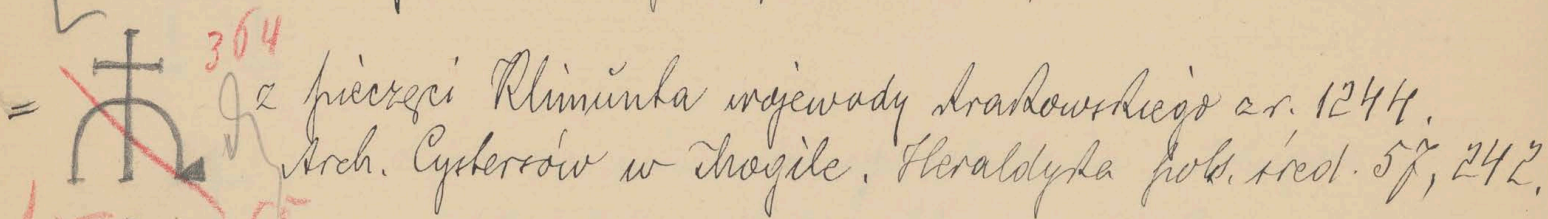 364
= z pieczęci Klimunta wojewody krakowskiego z r. 1244.
Arch. Cystersów w Mogile. Heraldyka pols. śred. 57, 242.